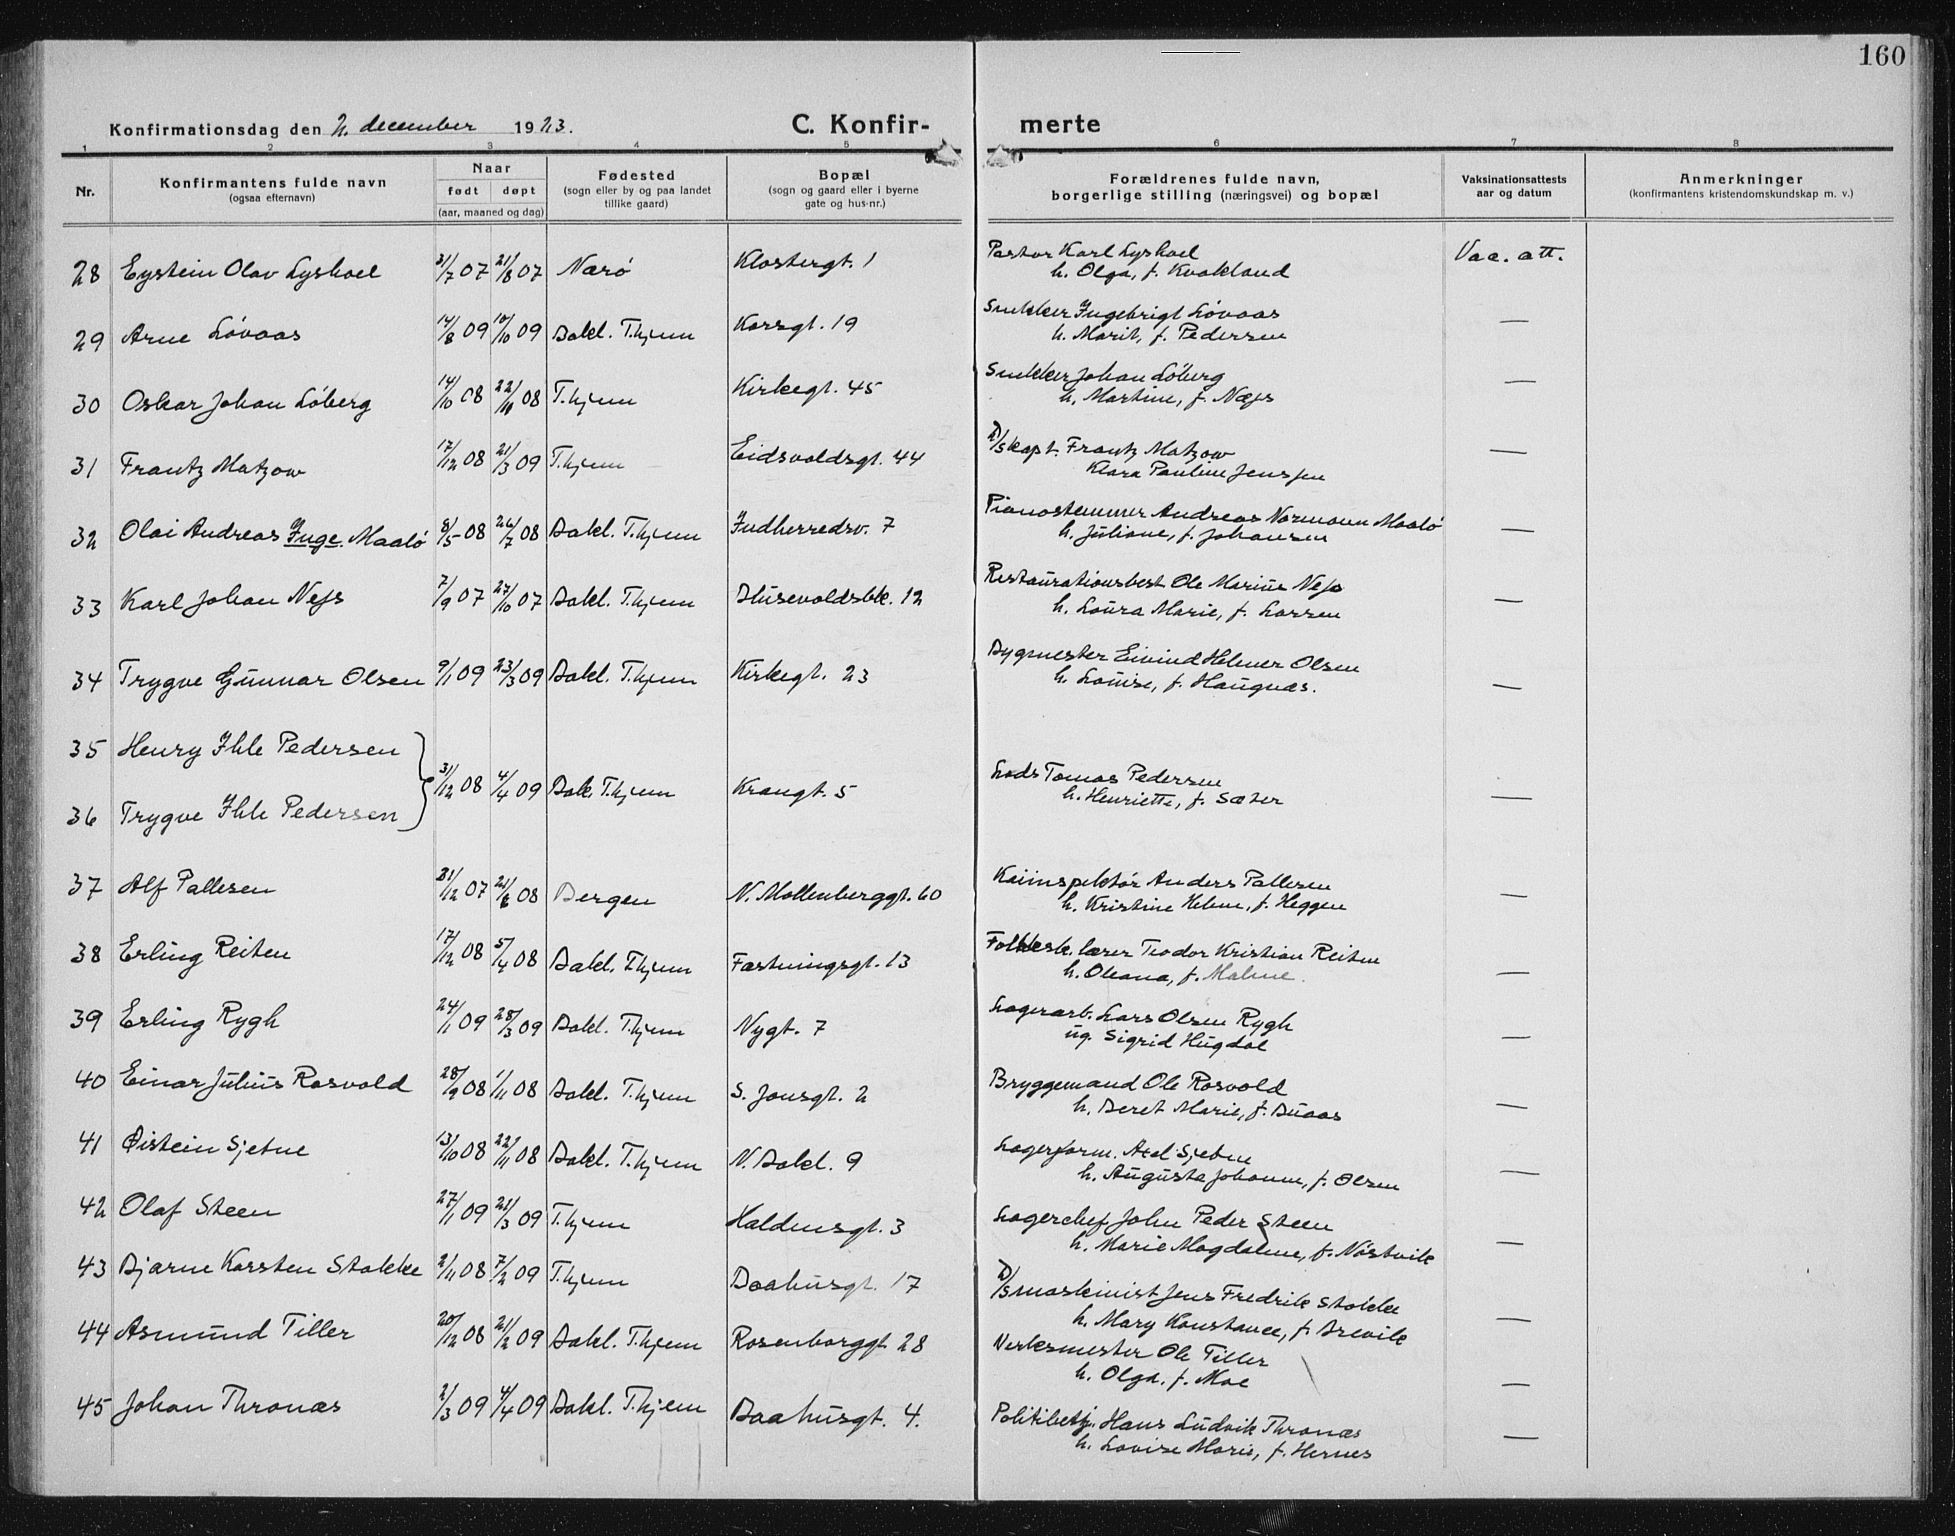 160
Konfirmationsdag den 2. december 1923. C. Konfir- merte
1 2 3 4 5 6 7 8
Nr. Konfirmantens fulde navn (ogsaa efternavn) Naar født døpt (aar, maaned og dag) Fødested (sogn eller by og paa landet tillike gaard) Bopæl (sogn og gaard eller i byerne gate og hus-nr.) Forældrenes fulde navn, borgerlige stilling (næringsvei) og bopæl Vaksinationsattests aar og datum Anmerkninger (konfirmantens kristendomskundskap m. v.)
28 Eystein Olav Lyshoel 31/7 07 21/8 07 Nærö Klostergt. 1 Pastor Karl Lyshoel Vac. att.
h. Olga, f. Kvakland
29 Arne Lövaas 14/8 09 10/10 09 Bakl. T.hjem Korsgt. 19 Snekker Ingebrigt Lövaas —
h. Marit, f. Pedersen
30 Oskar Johan Löberg 14/10 08 22/11 08 T.hjem Kirkegt. 45 Snekker Johan Löberg —
h. Martine, f. Næss
31 Frantz Matzow 17/12 08 21/3 09 T.hjem Eidsvoldsgt. 44 D/Skapt. Frantz Matzow —
Klara Pauline Jenssen
32 Olai Andreas Inge Maalö 8/5 08 26/7 08 Bakl. T.hjem Indherredsv. 7 Pianostemmer Andreas Normann Maalö —
h. Juliane, f. Johansen
33 Karl Johan Ness 7/9 07 27/10 07 Bakl. T.hjem Ihlsevoldsbk. 12 Restaurationsbest Ole Marius Ness —
h. Laura Marie, f. Larsen
34 Trygve Gunnar Olsen 9/1 09 23/3 09 Bakl. T.hjem Kirkegt. 23 Bygmester Eivind Helmer Olsen —
h. Louise, f. Haugnæs.
35 Henry Ihle Pedersen
36 Trygve Ihle Pedersen 31/12 08 4/4 09 Bak. T.hjem Krangt. 5 Lods Tomas Pedersen —
h. Henriette, f. Sæter
37 Alf Pallesen 31/12 07 21/6 08 Bergen N. Mollenberggt. 60 Kaiinspektör Anders Pallesen —
h. Kristine Helene, f. Heggen
38 Erling Reiten 17/12 08 5/4 08 Bakl. T.hjem Fæstningsgt. 13 Folkesk. lærer Teodor Kristian Reiten —
h. Oleana, f. Malme.
39 Erling Rygh 24/1 09 28/3 09 Bakl. T.hjem Nygt. 7 Lagerarb. Lars Olsen Rygh —
ug. Sigrid Hugdal
40 Einar Julius Rosvold 28/9 08 1/11 08 Bakl. T.hjem S. Jonsgt. 2 Bryggemand Ole Rosvold —
h. Beret Marie, f. Buaas
41 Øistein Sjetne 13/10 08 22/11 08 Bakl. T.hjem N. Bakl. 9 Lagerform. Axel Sjetne —
h. Augusta Johanne, f. Olsen
42 Olaf Steen 27/1 09 21/3 09 T.hjem Haldensgt. 3 Lagerchef John Peder Steen —
h. Marie Magdalene, f. Nöstvik
43 Bjarne Karsten Stokke 2/11 08 7/2 09 T.hjem Baahusgt. 17 D/Smaskinist Jens Fredrik Stokke —
h. Mary Konstance, f. Brevik
44 Asmund Tiller 20/12 08 21/2 09 Bakl. T.hjem Rosenborggt 28 Verksmester Ole Tiller —
h. Olga, f. Moe
45 Johan Thronæs 2/3 09 4/4 09 Bakl. T.hjem Baahusgt. 4. Politibetj. Hans Ludvik Thronæs —
h. Lovise Marie, f. Hernes